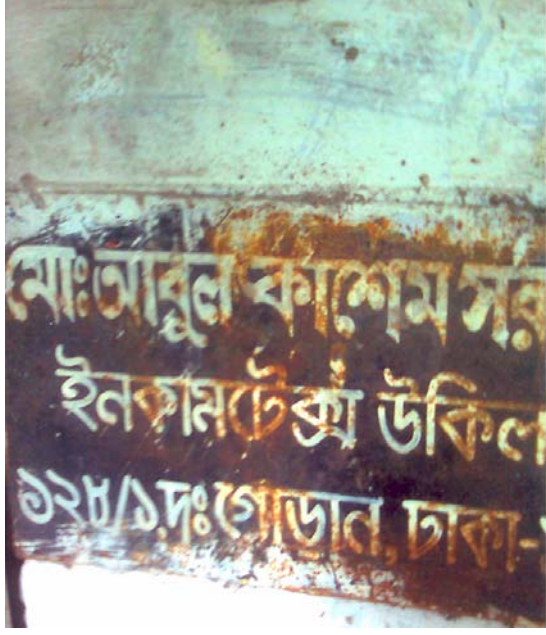 মোঃ আবুল কাশেম সর
ইনকামটেক্স উকিল
১২৮/১,দঃ গোড়ান, ঢাকা-